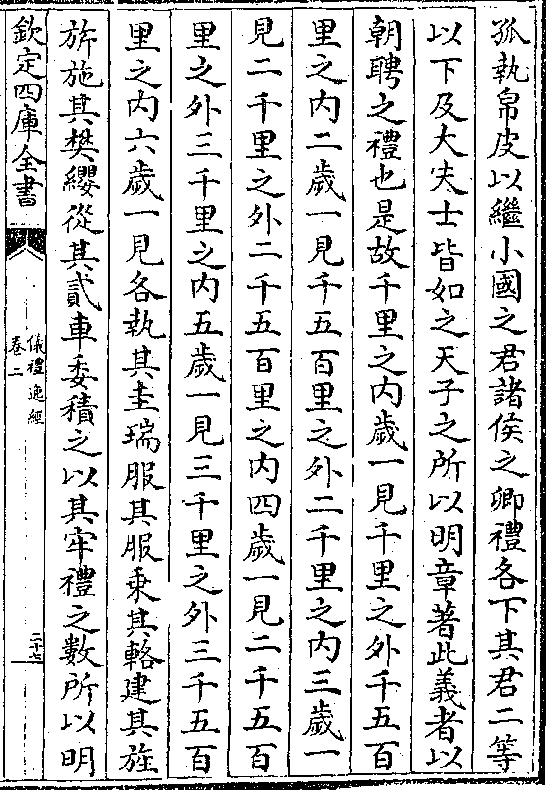 孤執帛皮以繼小國之君諸侯之卿禮各下其君二等
以下及大夫士皆如之天子之所以明章著此義者以
朝聘之禮也是故千里之内歲一見千里之外千五百
里之内二歲一見千五百里之外二千里之内三歲一
見二千里之外二千五百里之内四歲一見二千五百
里之外三千里之内五歲一見三千里之外三千五百
里之内六歲一見各執其圭瑞服其服乗其輅建其旌
旂施其樊纓從其貳車委積之以其牢禮之數所以明
欽定四庫全書
儀禮逸經
卷二
二十六